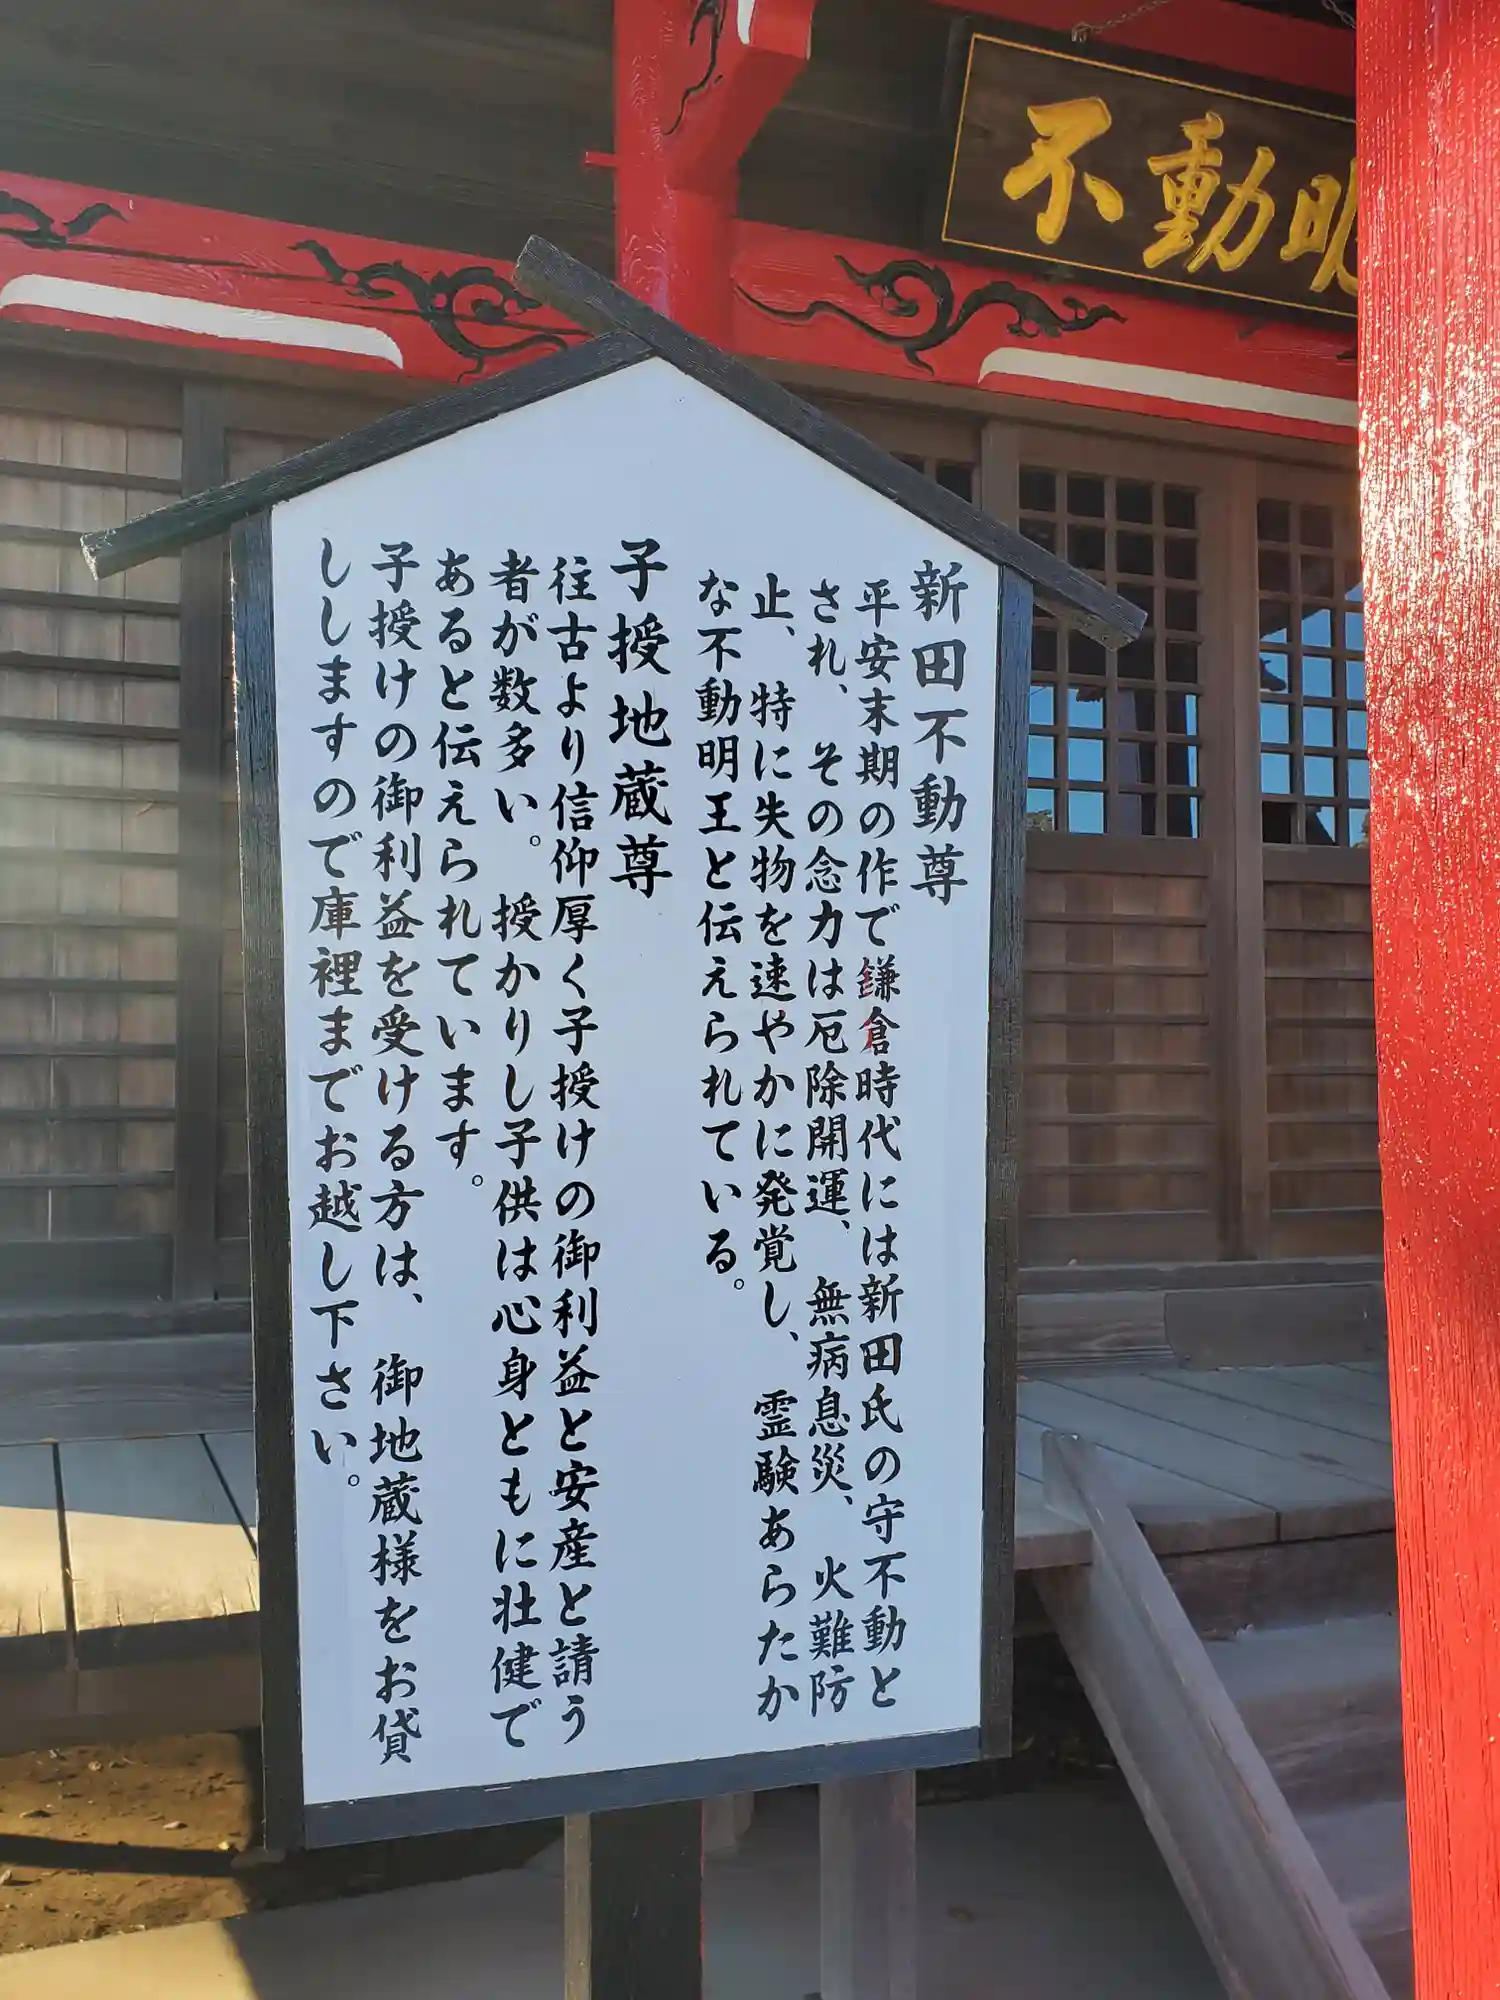 不動明
新田不動尊
平安末期の作で鎌倉時代には新田氏の守不動と
され、その念力は厄除開運、無病息災、火難防
止、特に失物を速やかに発覚し、霊験あらたか
な不動明王と伝えられている。
子授地蔵尊
往古より信仰厚く子授けの御利益と安産と請う
者が数多い。授かりし子供は心身ともに壮健で
あると伝えられています。
子授けの御利益を受ける方は、御地蔵様をお貸
ししますので庫裡までお越し下さい。